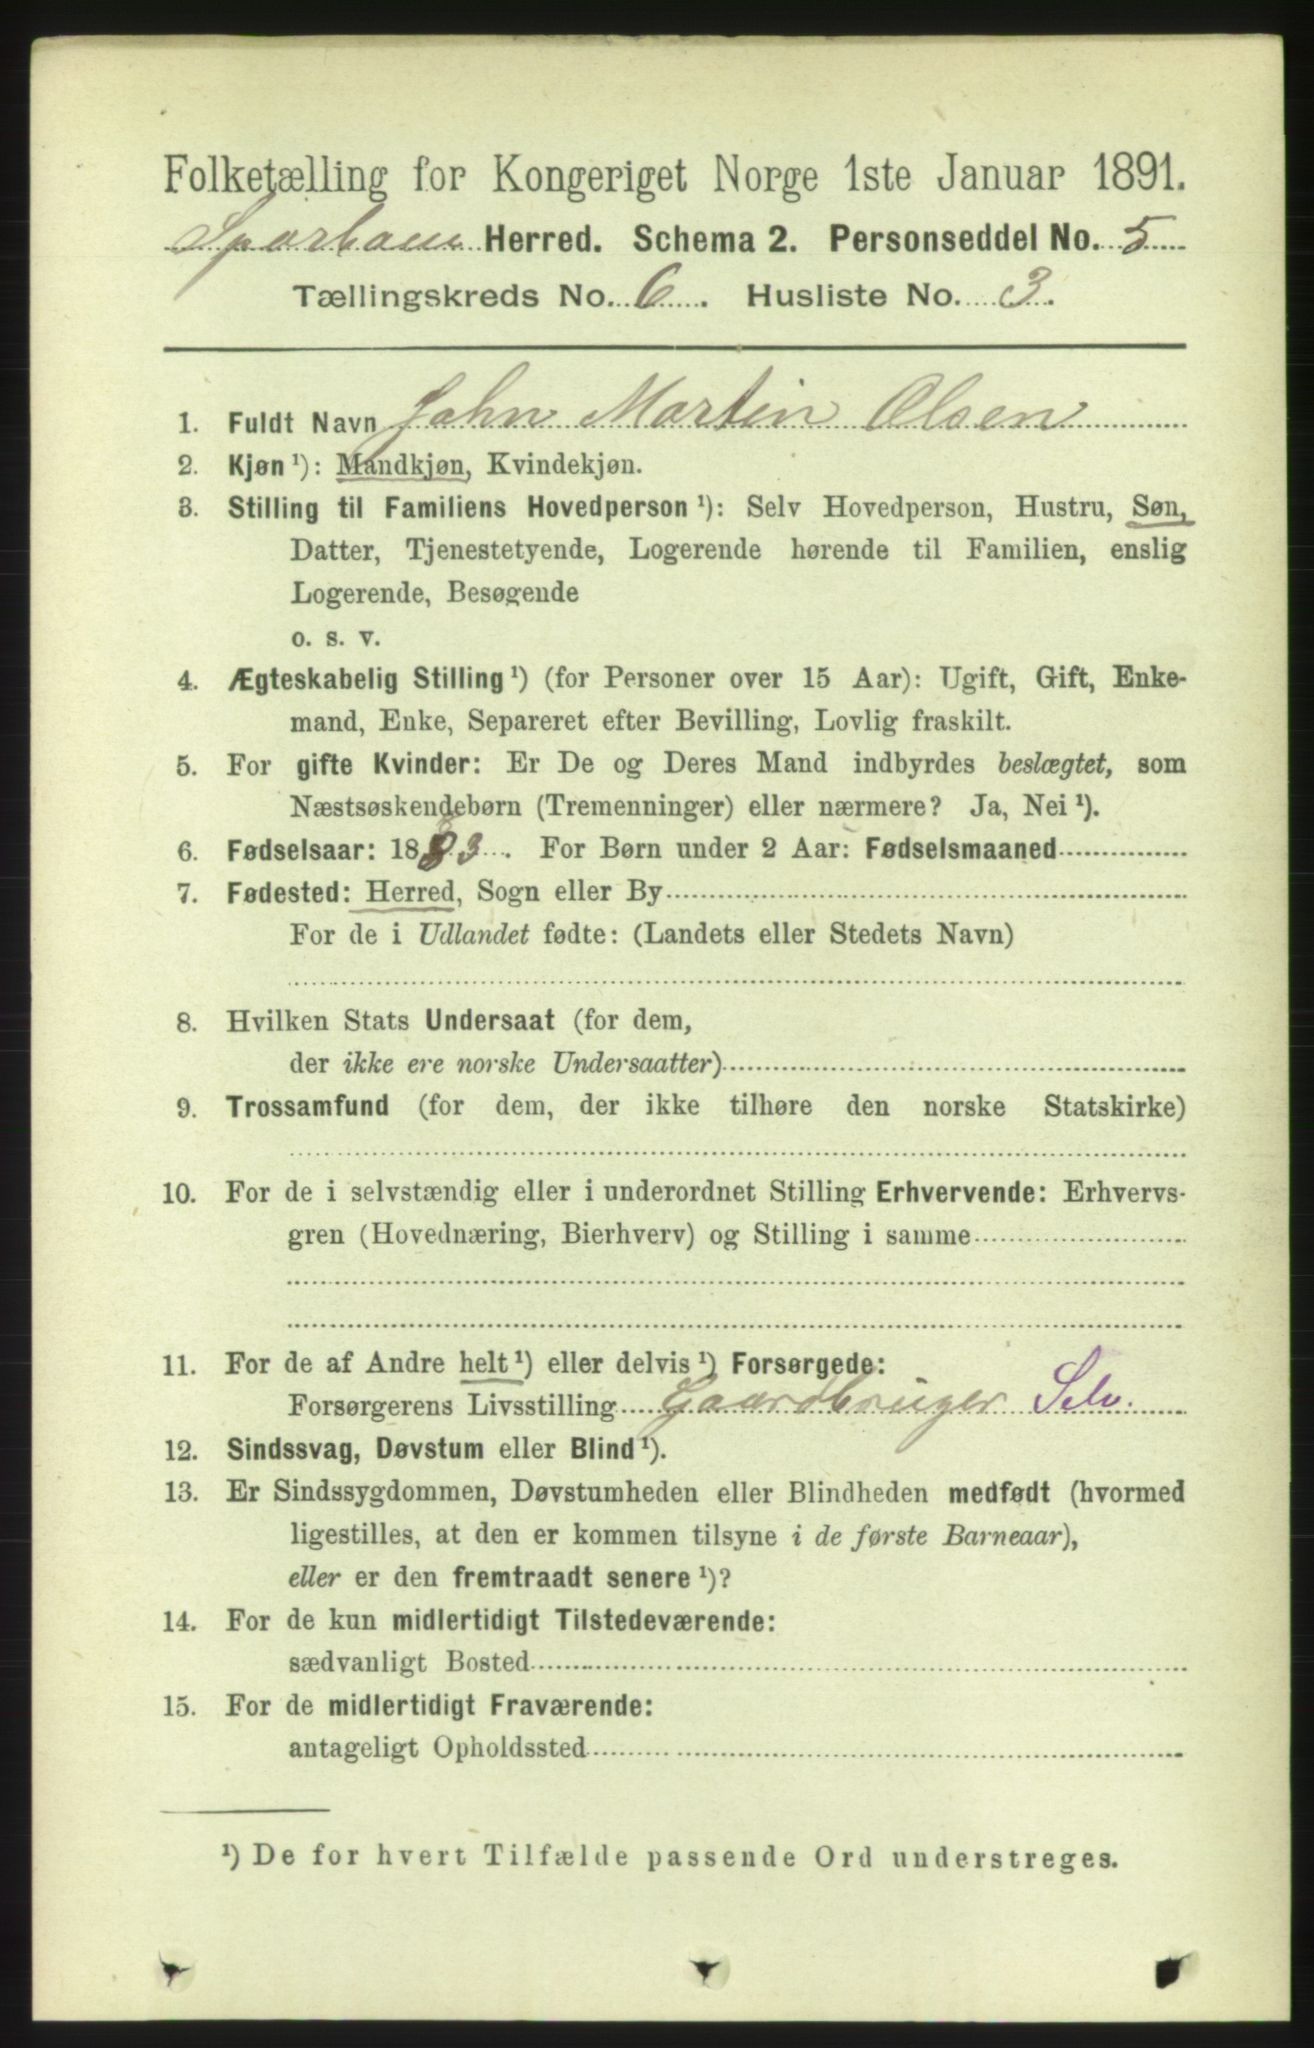 Folketælling for Kongeriget Norge 1ste Januar 1891.
Sparbuen Herred. Schema 2. Personseddel No. 5
Tællingskreds No. 6. Husliste No. 3.
1. Fuldt Navn John Martin Olsen
2. Kjøn ¹): Mandkjøn, Kvindekjøn.
3. Stilling til Familiens Hovedperson ¹): Selv Hovedperson, Hustru, Søn,
Datter, Tjenestetyende, Logerende hørende til Familien, enslig
Logerende, Besøgende
o. s. v.
4. Ægteskabelig Stilling ¹) (for Personer over 15 Aar): Ugift, Gift, Enke-
mand, Enke, Separeret efter Bevilling, Lovlig fraskilt.
5. For gifte Kvinder: Er De og Deres Mand indbyrdes beslægtet, som
Næstsøskendebørn (Tremenninger) eller nærmere? Ja, Nei ¹).
6. Fødselsaar: 1883. For Børn under 2 Aar: Fødselsmaaned
7. Fødested: Herred, Sogn eller By
For de i Udlandet fødte: (Landets eller Stedets Navn)
8. Hvilken Stats Undersaat (for dem,
der ikke ere norske Undersaatter)
9. Trossamfund (for dem, der ikke tilhøre den norske Statskirke)
10. For de i selvstændig eller i underordnet Stilling Erhvervende: Erhvervs-
gren (Hovednæring, Bierhverv) og Stilling i samme
11. For de af Andre helt ¹) eller delvis ¹) Forsørgede:
Forsørgerens Livsstilling Gaardbruger Selv.
12. Sindssvag, Døvstum eller Blind ¹).
13. Er Sindssygdommen, Døvstumheden eller Blindheden medfødt (hvormed
ligestilles, at den er kommen tilsyne i de første Barneaar),
eller er den fremtraadt senere ¹)?
14. For de kun midlertidigt Tilstedeværende:
sædvanligt Bosted
15. For de midlertidigt Fraværende:
antageligt Opholdssted
¹) De for hvert Tilfælde passende Ord understreges.